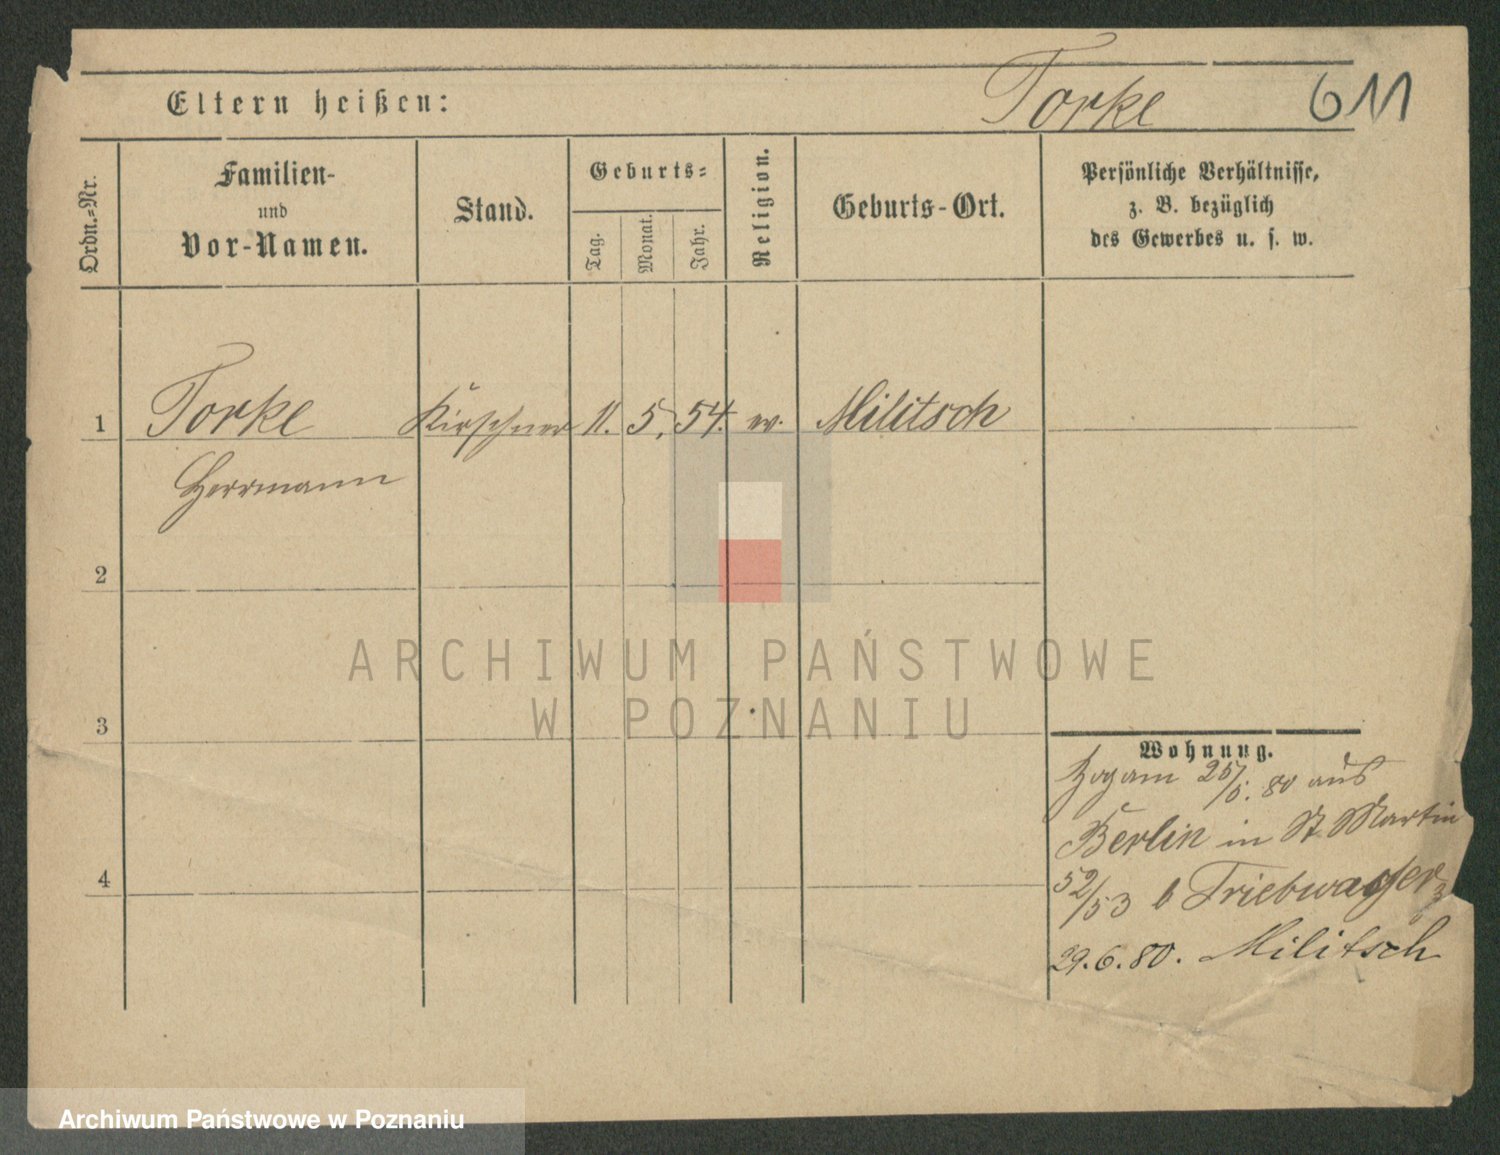 Eltern heißen:
Torke
611
Ordn.=Nr.
Familien-
und
Vor-Namen.
Stand.
Geburts=
Tag.
Monat.
Jahr.
Religion.
Geburts-Ort.
Persönliche Verhältnisse,
z. B. bezüglich
des Gewerbes u. s. w.
1
Torke Kürschner 11. 5. 54. ev. Militsch
Herrmann
2
ARCHIWUM PAŃSTWOWE
W POZNANIU
3
Wohnung.
Zog am 25/5. 80 aus
Berlin in St Martin
4
52/53 b
29.6.80. Militsch
Archiwum Państwowe w Poznaniu